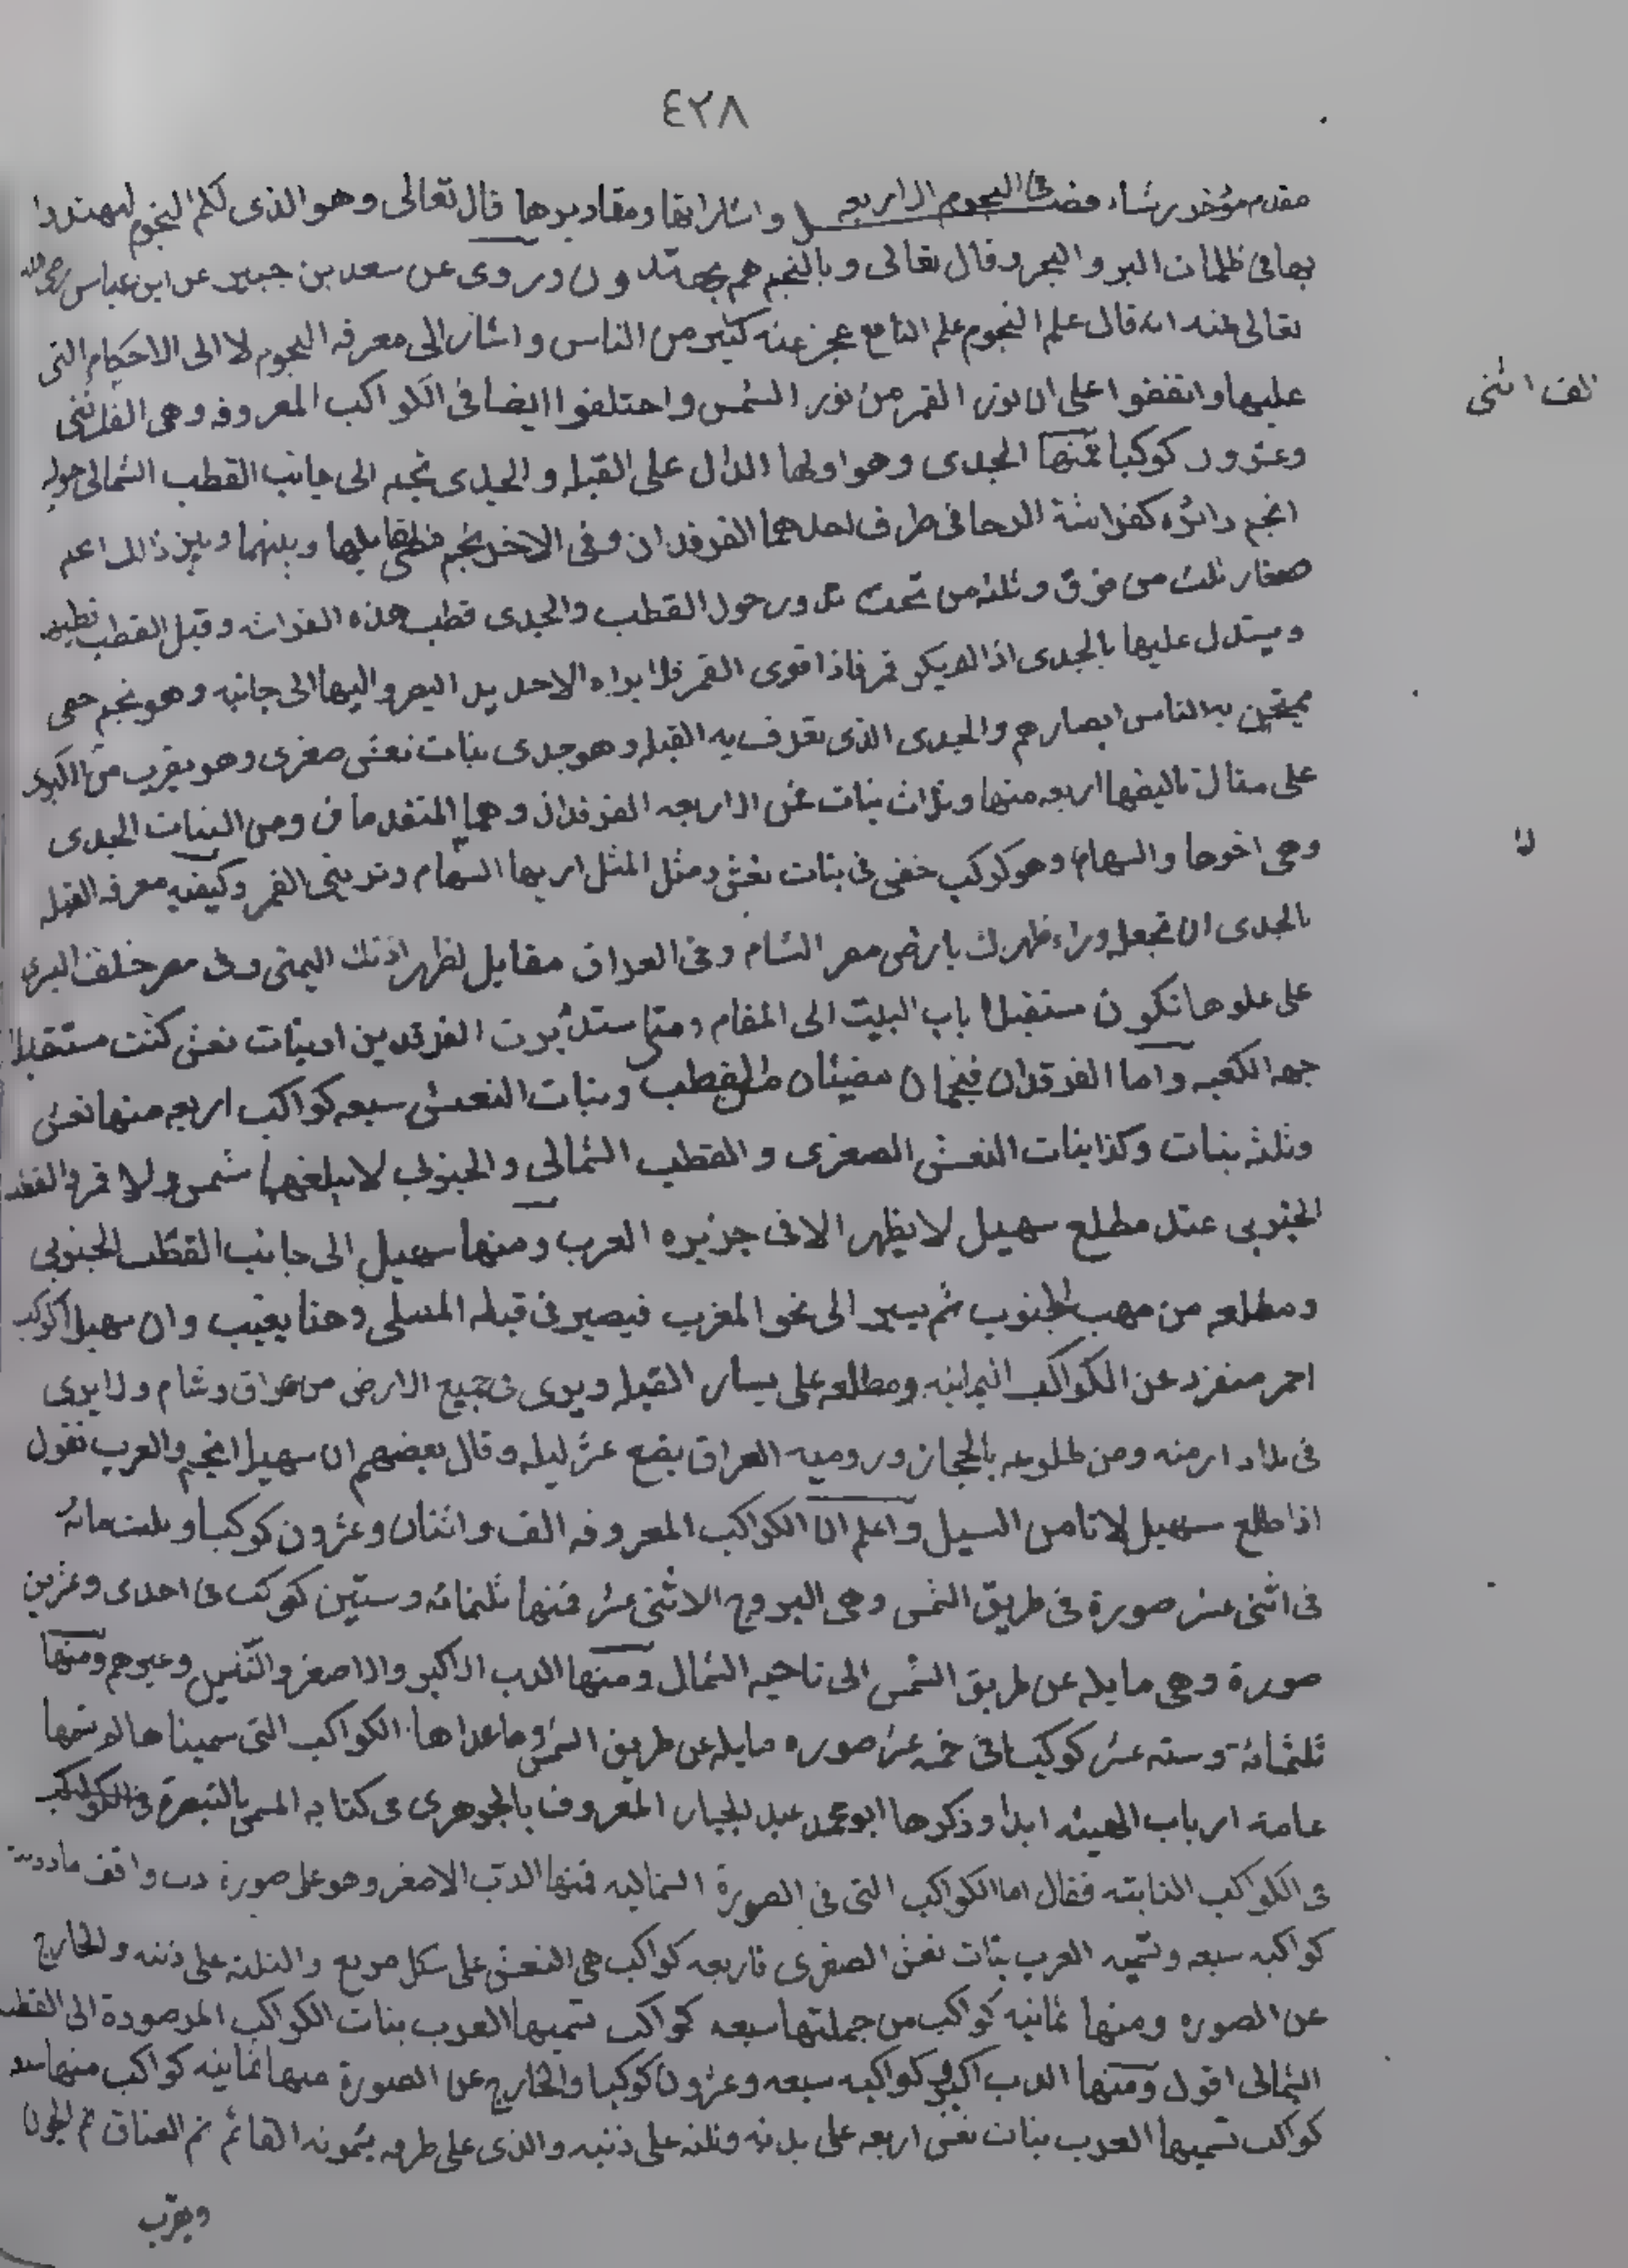 ٤٢٨
مقدم مؤخر من شاء فصل في النجوم الاربعه واشاراتها ومقاديرها قال تعالى وهو الذى لكم النجوم لتهتدوا
بها في ظلمات البر والبحر وقال تعالى وبالنجم هم يهتدون وروى عن سعد بن جبير عن ابن عباس رضى الله
تعالى عنه انه قال علم النجوم علم النافع عجز عنه كثير من الناس واشار الى معرفه النجوم لا الى الاحكام التى
عليها واتفقوا على ان نور القمر من نور الشمس واختلفوا ايضا فى الكواكب المعروفه وهى
الف اثنى
وعشرون كوكبا فمنها الجدى وهو اولها الدال على القبله والجدى نجم الى جانب القطب الشمالى حوله
انجم دائره كفراشة الرحا فى طرف احدهما الفرقدان وفى الاخر نجم وبينهما وبين ذالك انجم
صغار ثلث من فوق وثلثه من تحت تدور حول القطب والجدى قطب هذه الفراشه وقبل القطب
ويستدل عليها بالجدى اذا لم يكن قمر فاذا قوى القمر فلا يراه الا حديد البصر واليها الى جانبه وهو نجم خفى
يمتحن به الناس ابصارهم والجدى الذى تعرف به القبله وهو جدى بنات نعش صغرى وهو يقرب من الكبرى
على مثال تاليفها اربعه منها وثلاث بنات الاربعه الفرقدان وهما المتقدمان ومن البنات الجدى
لا
وهى اخرها والسهام وهو كوكب خفى فى بنات نعش ومثل المثل اريها السهام وترينى القمر وكيفيه معرفه القبله
بالجدى ان تجعل وراء ظهرك بارض مصر الشام وفى العراق مقابل لظهر اذنك اليمنى وفى مصر خلف اليسرى
على علوها تكون مستقبلا باب البيت الى المقام ومتى استدبرت الفرقدين او بنات نعش كنت مستقبلا
جهه الكعبه واما الفرقدان فنجمان مضيئان من القطب وبنات النعش سبعه كواكب اربعه منها نعش
وثلثه بنات وكذا بنات النعش الصغرى والقطب الشمالى والجنوبى لا يبلغهما شمس ولا قمر والقطب
الجنوبى عند مطلع سهيل لا يظهر الا فى جزيره العرب ومنها سهيل الى جانب القطب الجنوبى
ومطلعه من مهب الجنوب ثم يسير الى نحو المغرب فيصير فى قبله المسلى وهنا يغيب وان سهيل كوكب
احمر منفرد عن الكواكب اليمانيه ومطلعه على يسار القبله ويرى فى جميع الارض من عراق وشام ولا يرى
فى بلاد ارمنه ومن طلوعه بالحجاز ورؤميه العراق بضع عشر ليله وقال بعضهم ان سهيلا نجم والعرب تقول
اذا طلع سهيل لا تامن السيل واعلم ان الكواكب المعروفه الف واثنان وعشرون كوكبا وثلث مائه
فى اثنى عشر صورة فى طريق الشمس وهى البروج الاثنى عشر فمنها ثلثمائه وستين كوكب فى احدى وعشرين
صورة وهى مايله عن طريق الشمس الى ناحيه الشمال ومنها الدب الاكبر والاصغر والتنين وغيرهم ومنها
ثلثمائة وسته عشر كوكبا فى خمسه عشر صوره مايله عن طريق الشمس وما عداها الكواكب التى سميناها لم تسمها
عامة ارباب الهيئه ابدا وذكرها ابو محمد عبد الجبار المعروف بالجوهرى فى كتابه المسمى بالتبصرة فى الكواكب
فى الكواكب الثابته فقال اما الكواكب التى فى الصورة الشماليه فمنها الدب الاصغر وهو على صورة دب واقف
كواكبه سبعه وتسميه العرب بنات نعش الصغرى فاربعه كواكب هى النعش على شكل مربع والثلثه على ذنبه والخارج
عن الصوره ومنها ثمانيه كواكب من جملتها سبعه كواكب تسميها العرب بنات الكواكب المرصودة الى القطب
الشمالى اقول ومنها الدب اكبر وكواكبه سبعه وعشرون كوكبا والخارج عن الصورة منها ثمانيه كواكب منها
كواكب تسميها العرب بنات نعش اربعه على بدنه وثلثه على ذنبه والذى على طرفه يسمونه القائم ثم العناق ثم الجون
ويقرب